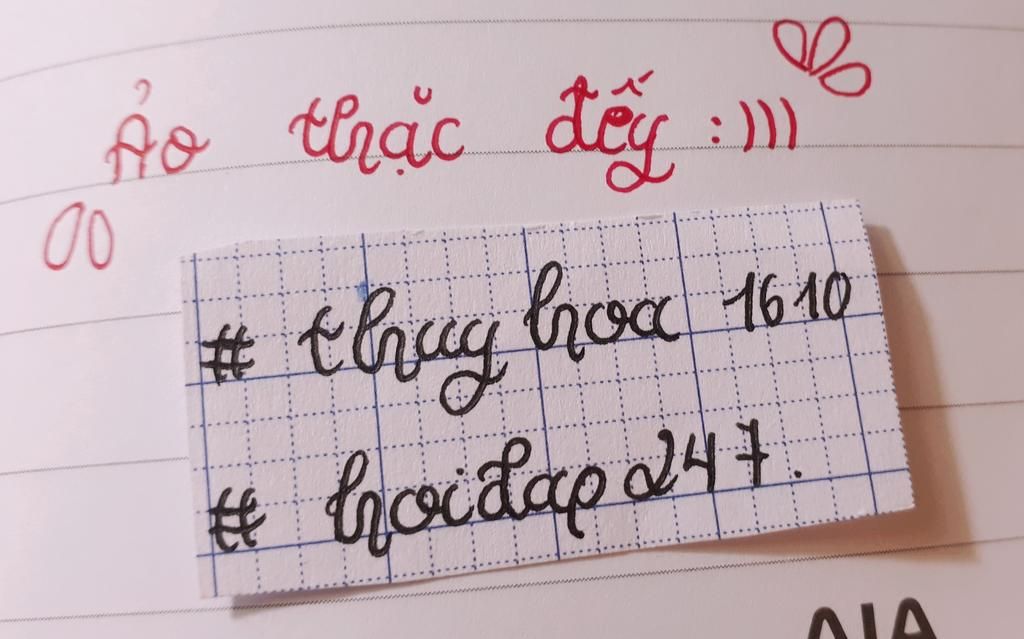 Ảo thặc đếy :)))
# thuy hoa 1610
# hoidap 247.